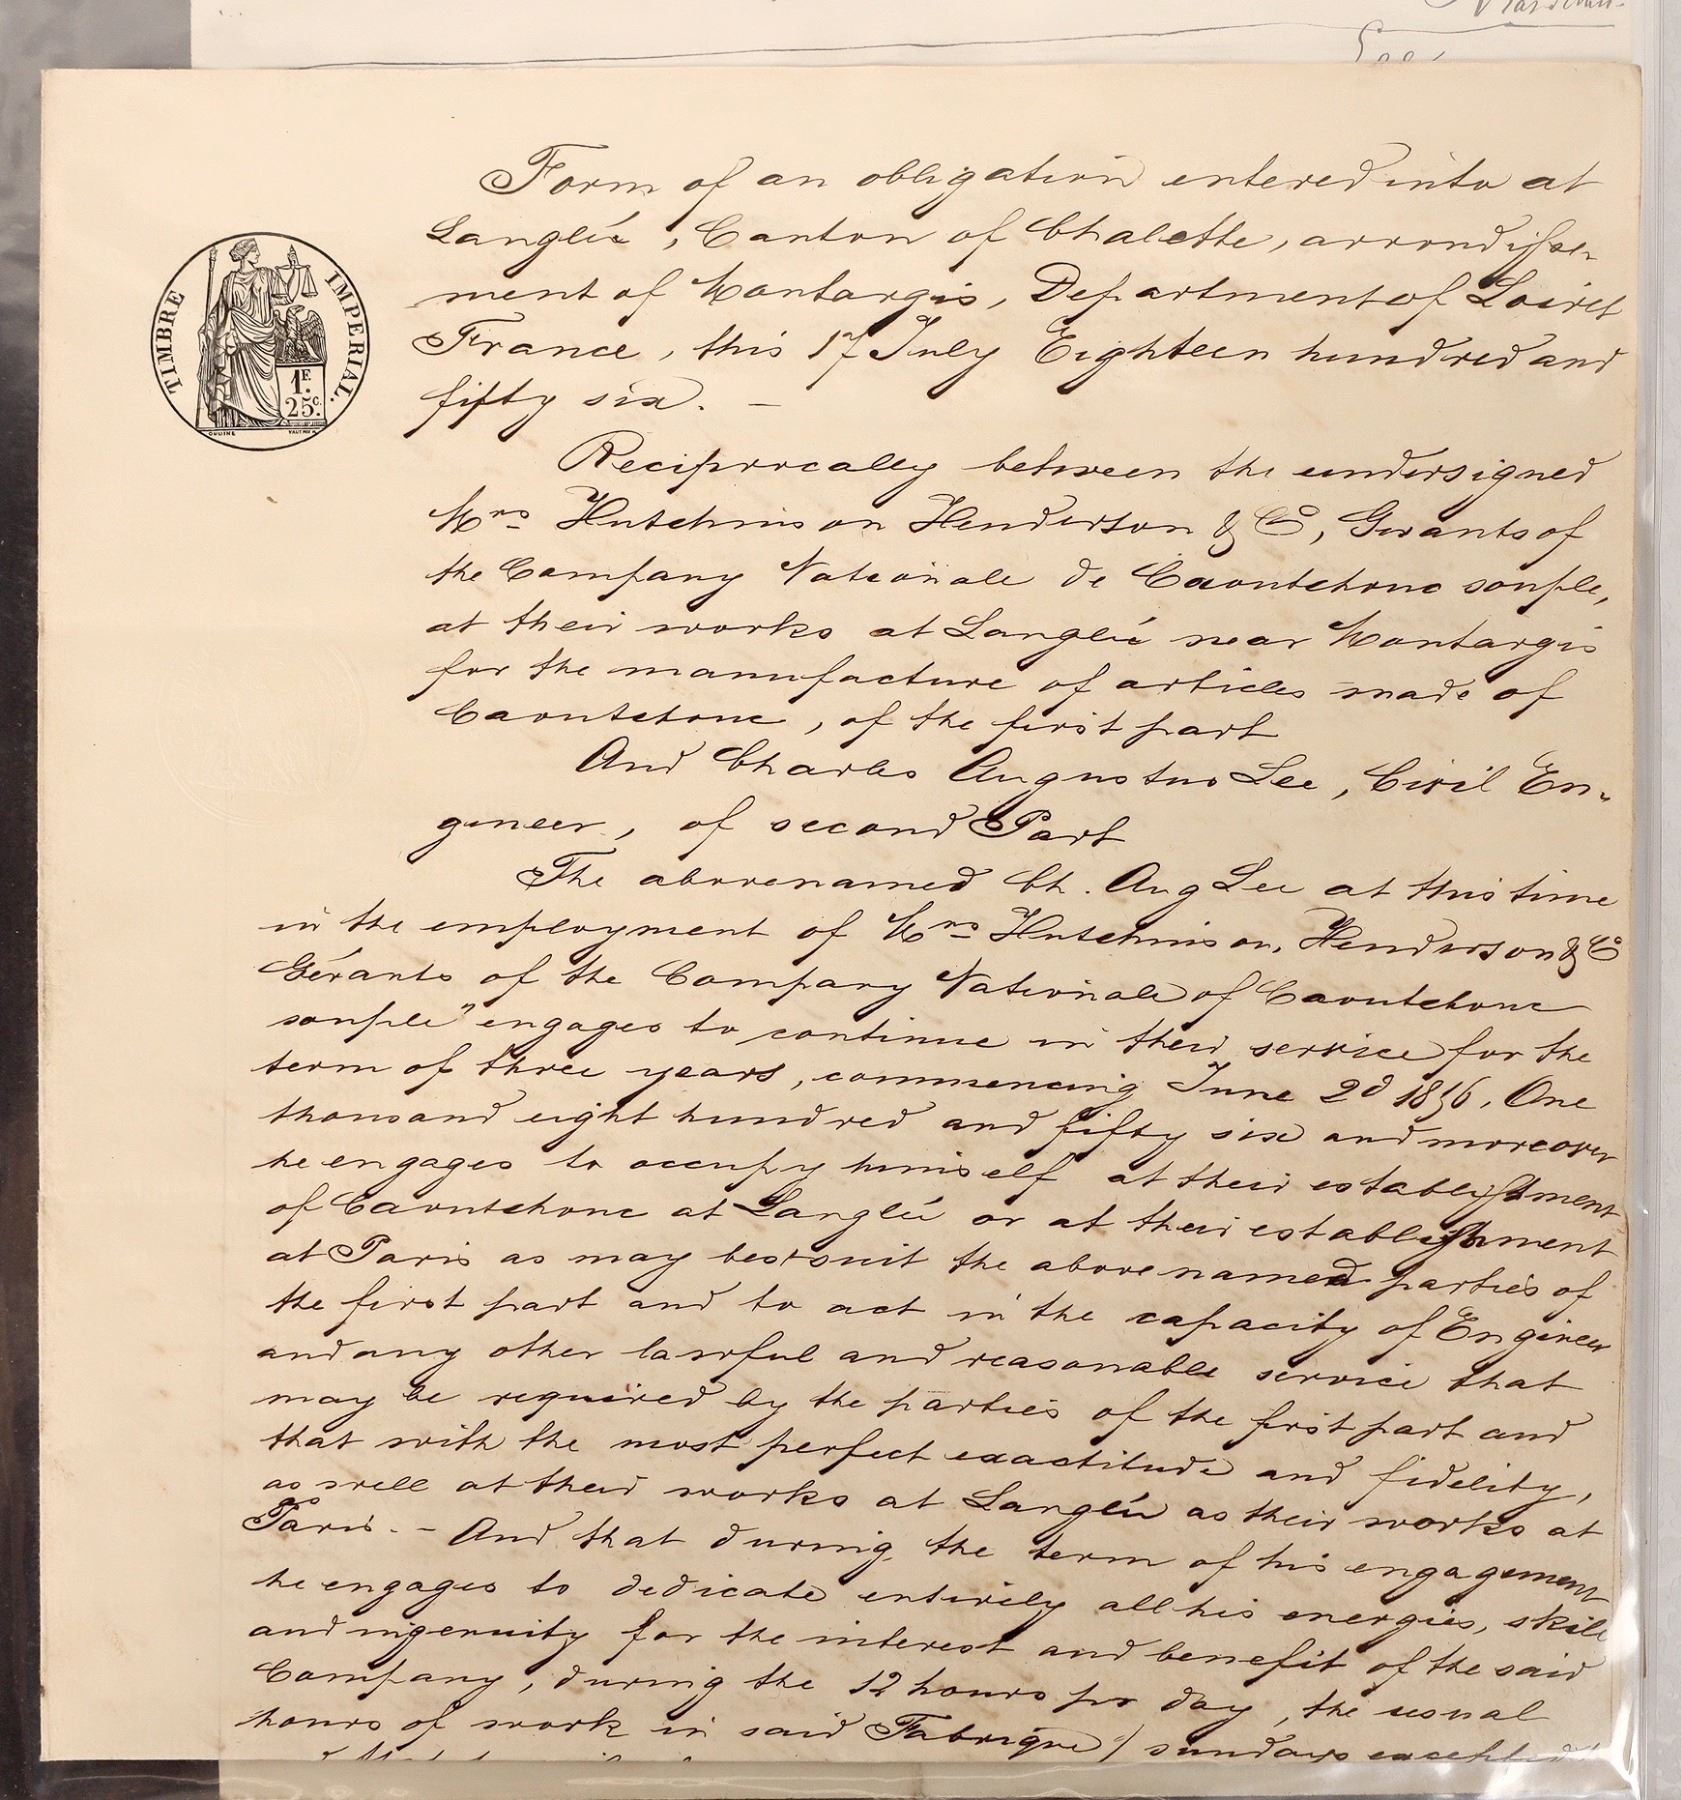 TIMBRE IMPERIAL.
1F.
25c.
Form of an obligation entered into at
Langlée, Canton of Chalette, arrondisse-
ment of Montargis, Department of Loiret
France, this 17 July Eighteen hundred and
fifty six. —
Reciprocally between the undersigned
Mrs Hutchinson Henderson & Co, Gerants of
the Company Nationale de Caoutchouc souple,
at their works at Langlée near Montargis
for the manufacture of articles made of
Caoutchouc, of the first part
And Charles Augustus Lee, Civil En-
gineer, of second Part
The abovenamed Ch. Aug Lee at this time
in the employment of Mrs Hutchinson, Henderson & Co
Gérants of the Company Nationale of Caoutchouc
souple" engages to continue in their service for the
term of three years, commencing June 2d 1856, One
thousand eight hundred and fifty six and moreover
he engages to occupy himself at their establishment
of Caoutchouc at Langlée or at their establishment
at Paris as may best suit the above named parties of
the first part and to act in the capacity of Engineer
and any other lawful and reasonable service that
may be required by the parties of the first part and
that with the most perfect exactitude and fidelity,
as well at their works at Langlée as their works at
Paris. — And that during the term of his engagement
he engages to dedicate entirely all his energies, skill
and ingenuity for the interest and benefit of the said
Company, during the 12 hours pr day, the usual
hours of work in said Fabrique) sundays excepted